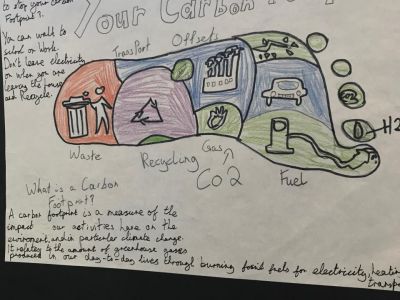 to stop your carbon
Footprint?
Your Carbon Foo
You can walk to
school or work.
Don't leave electricity
on when you are
leaving the house
and Recycle.
Transport
Offsets
Waste
Recycling
Gas
CO2
Fuel
H2
What is a Carbon
Footprint?
A carbon footprint is a measure of the
impact our activities have on the
environment, and in particular climate change.
It relates to the amount of greenhouse gases
produced in our day-to-day lives through burning fossil fuels for electricity, heating
transpo